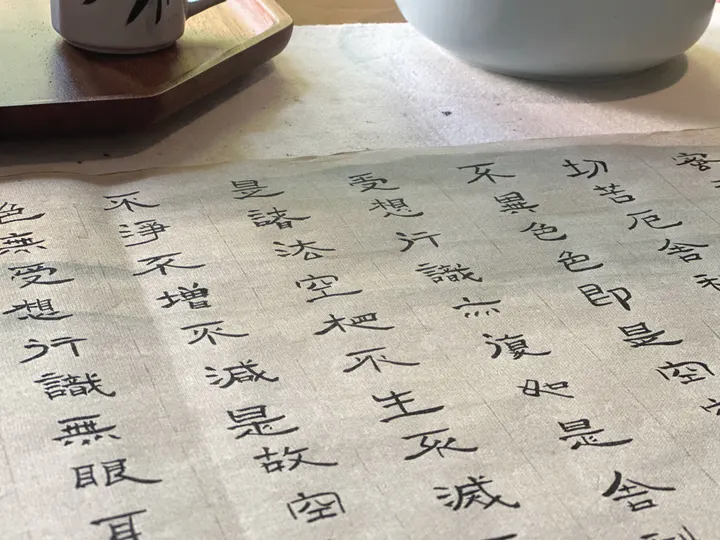 切苦厄舍利
不異色色即是空空
受想行識亦復如是舍利
是諸法空相不生不滅不
不淨不增不減是故空
色無受想行識無眼耳